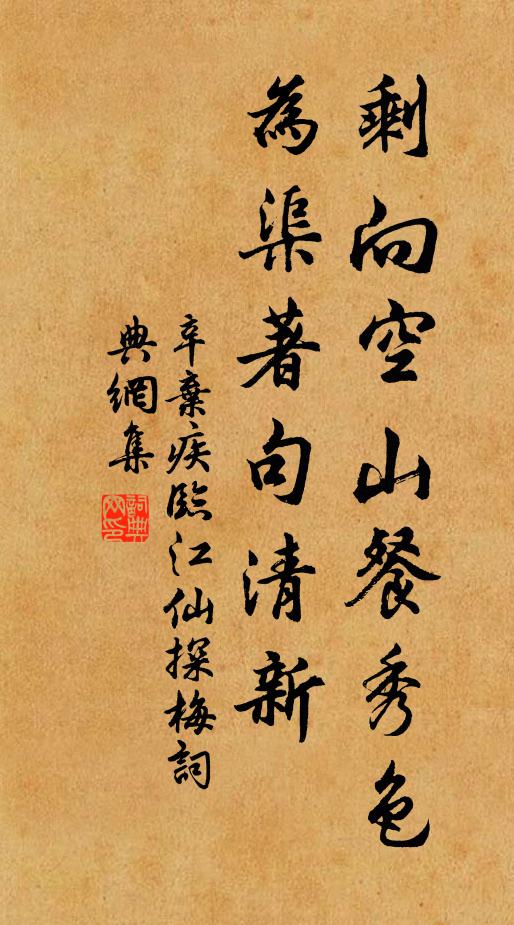 剩向空山餐秀色
為渠著句清新
辛棄疾臨江仙探梅詞
典網集
詞典網印